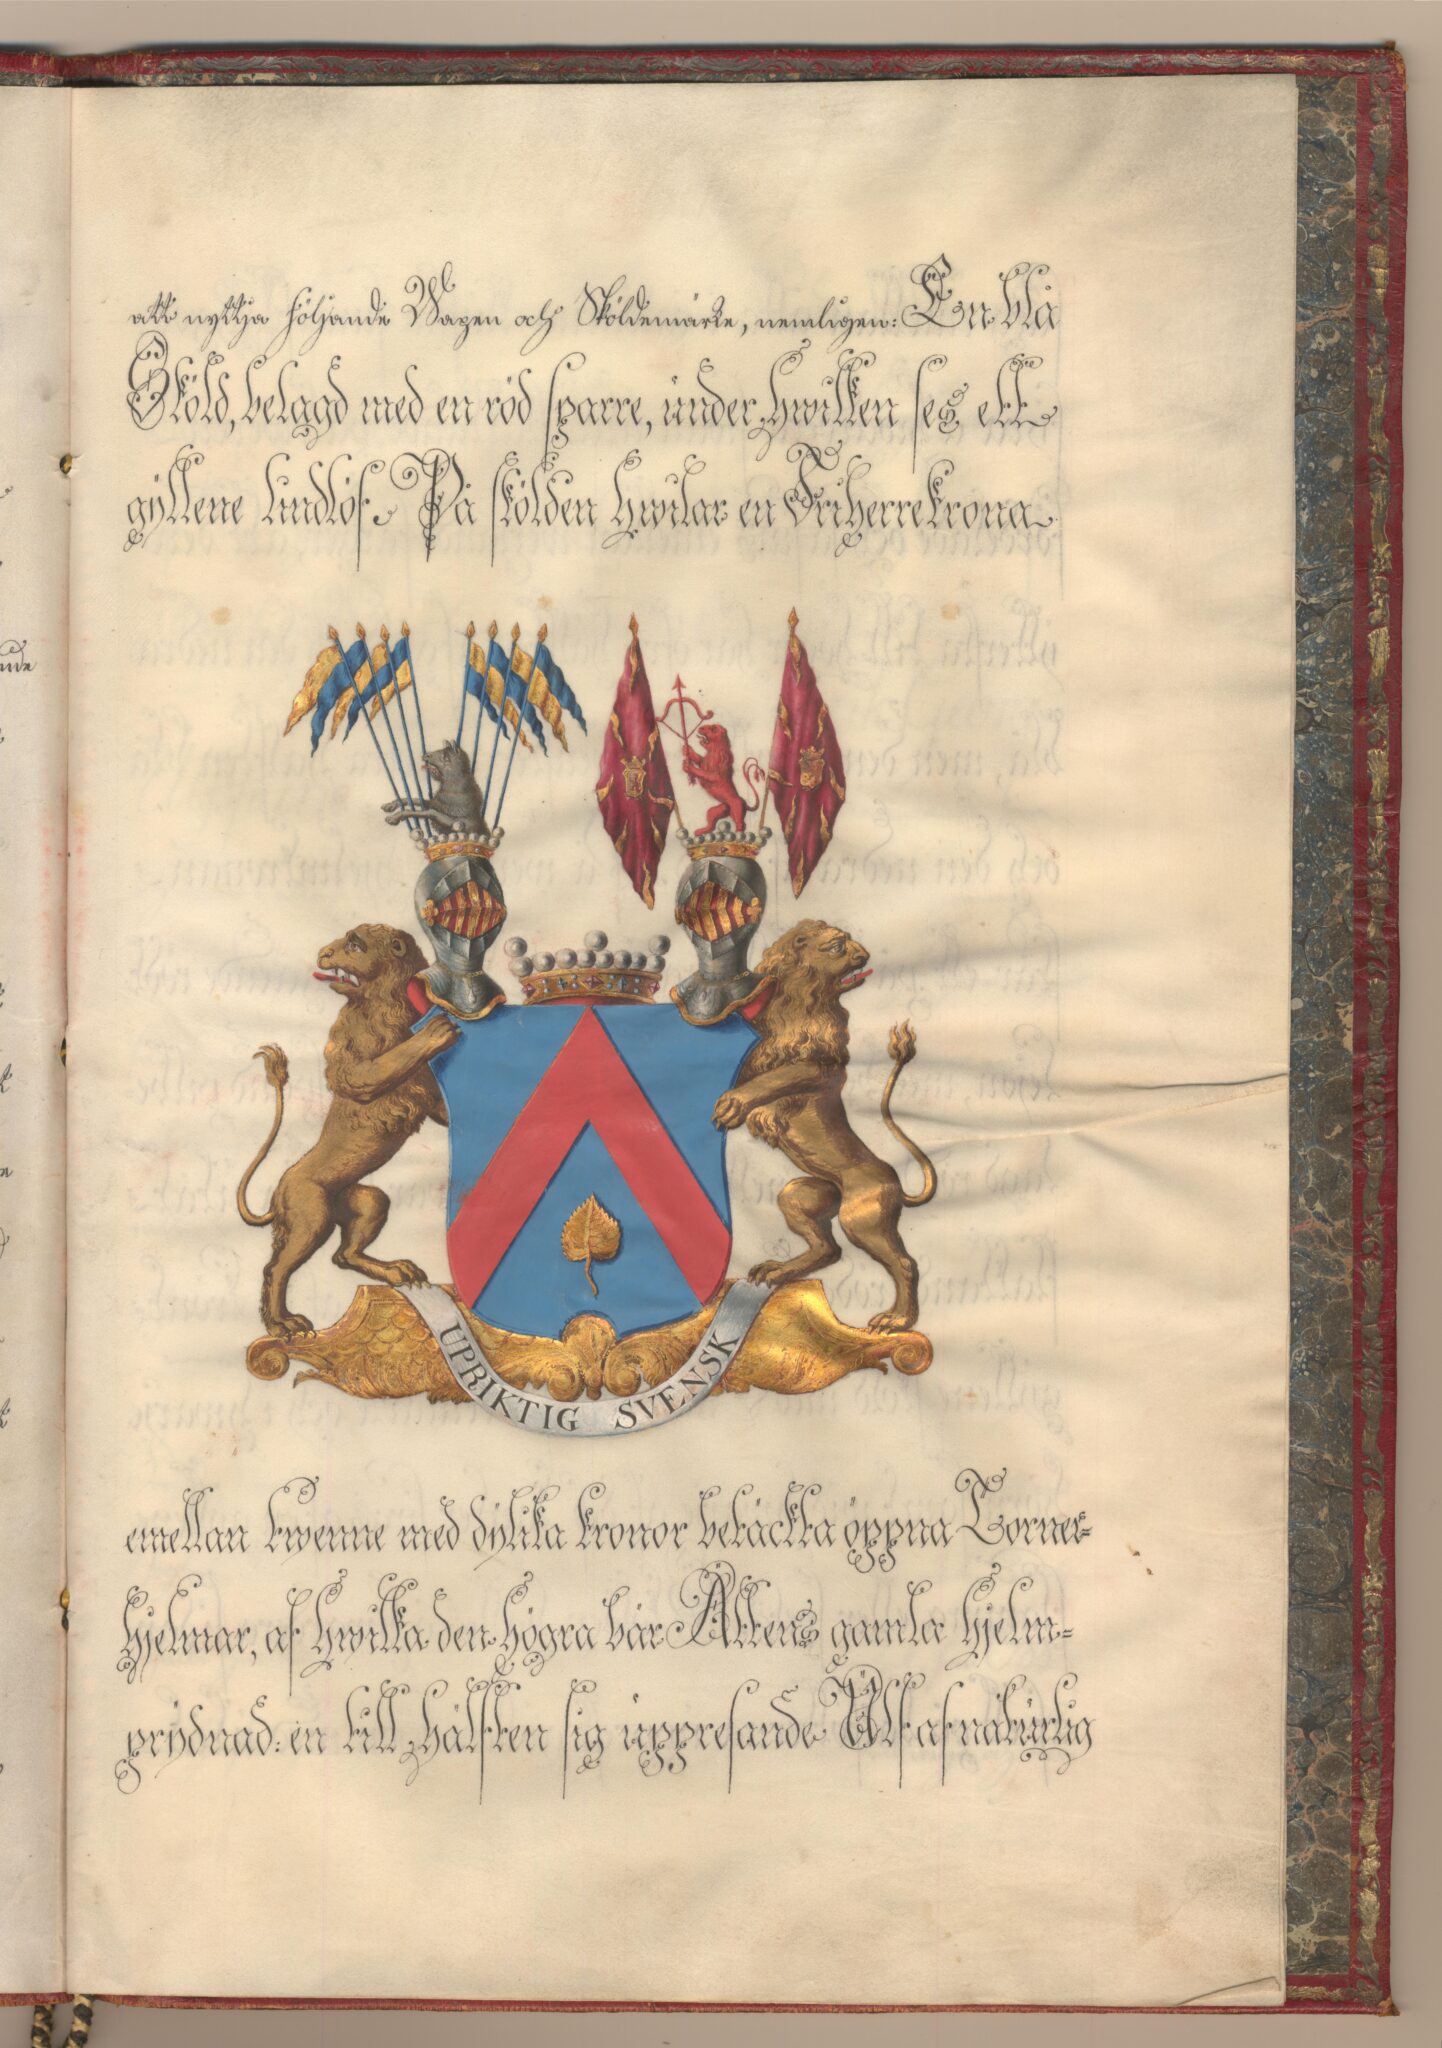 att nyttja följande Wapen och Sköldemärke, nemligen: En blå
Sköld, belagd med en röd sparre, under hwilken ses ett
gyllene lindlöf. På skölden hwilar en Friherrekrona
UPRIKTIG SVENSK
emellan twenne med dylika kronor betäckta öppna Torner-
hjelmar, af hwilka den högra bär Ättens gamla hjelm-
prydnad: en till hälften sig uppresande Ulf af naturlig